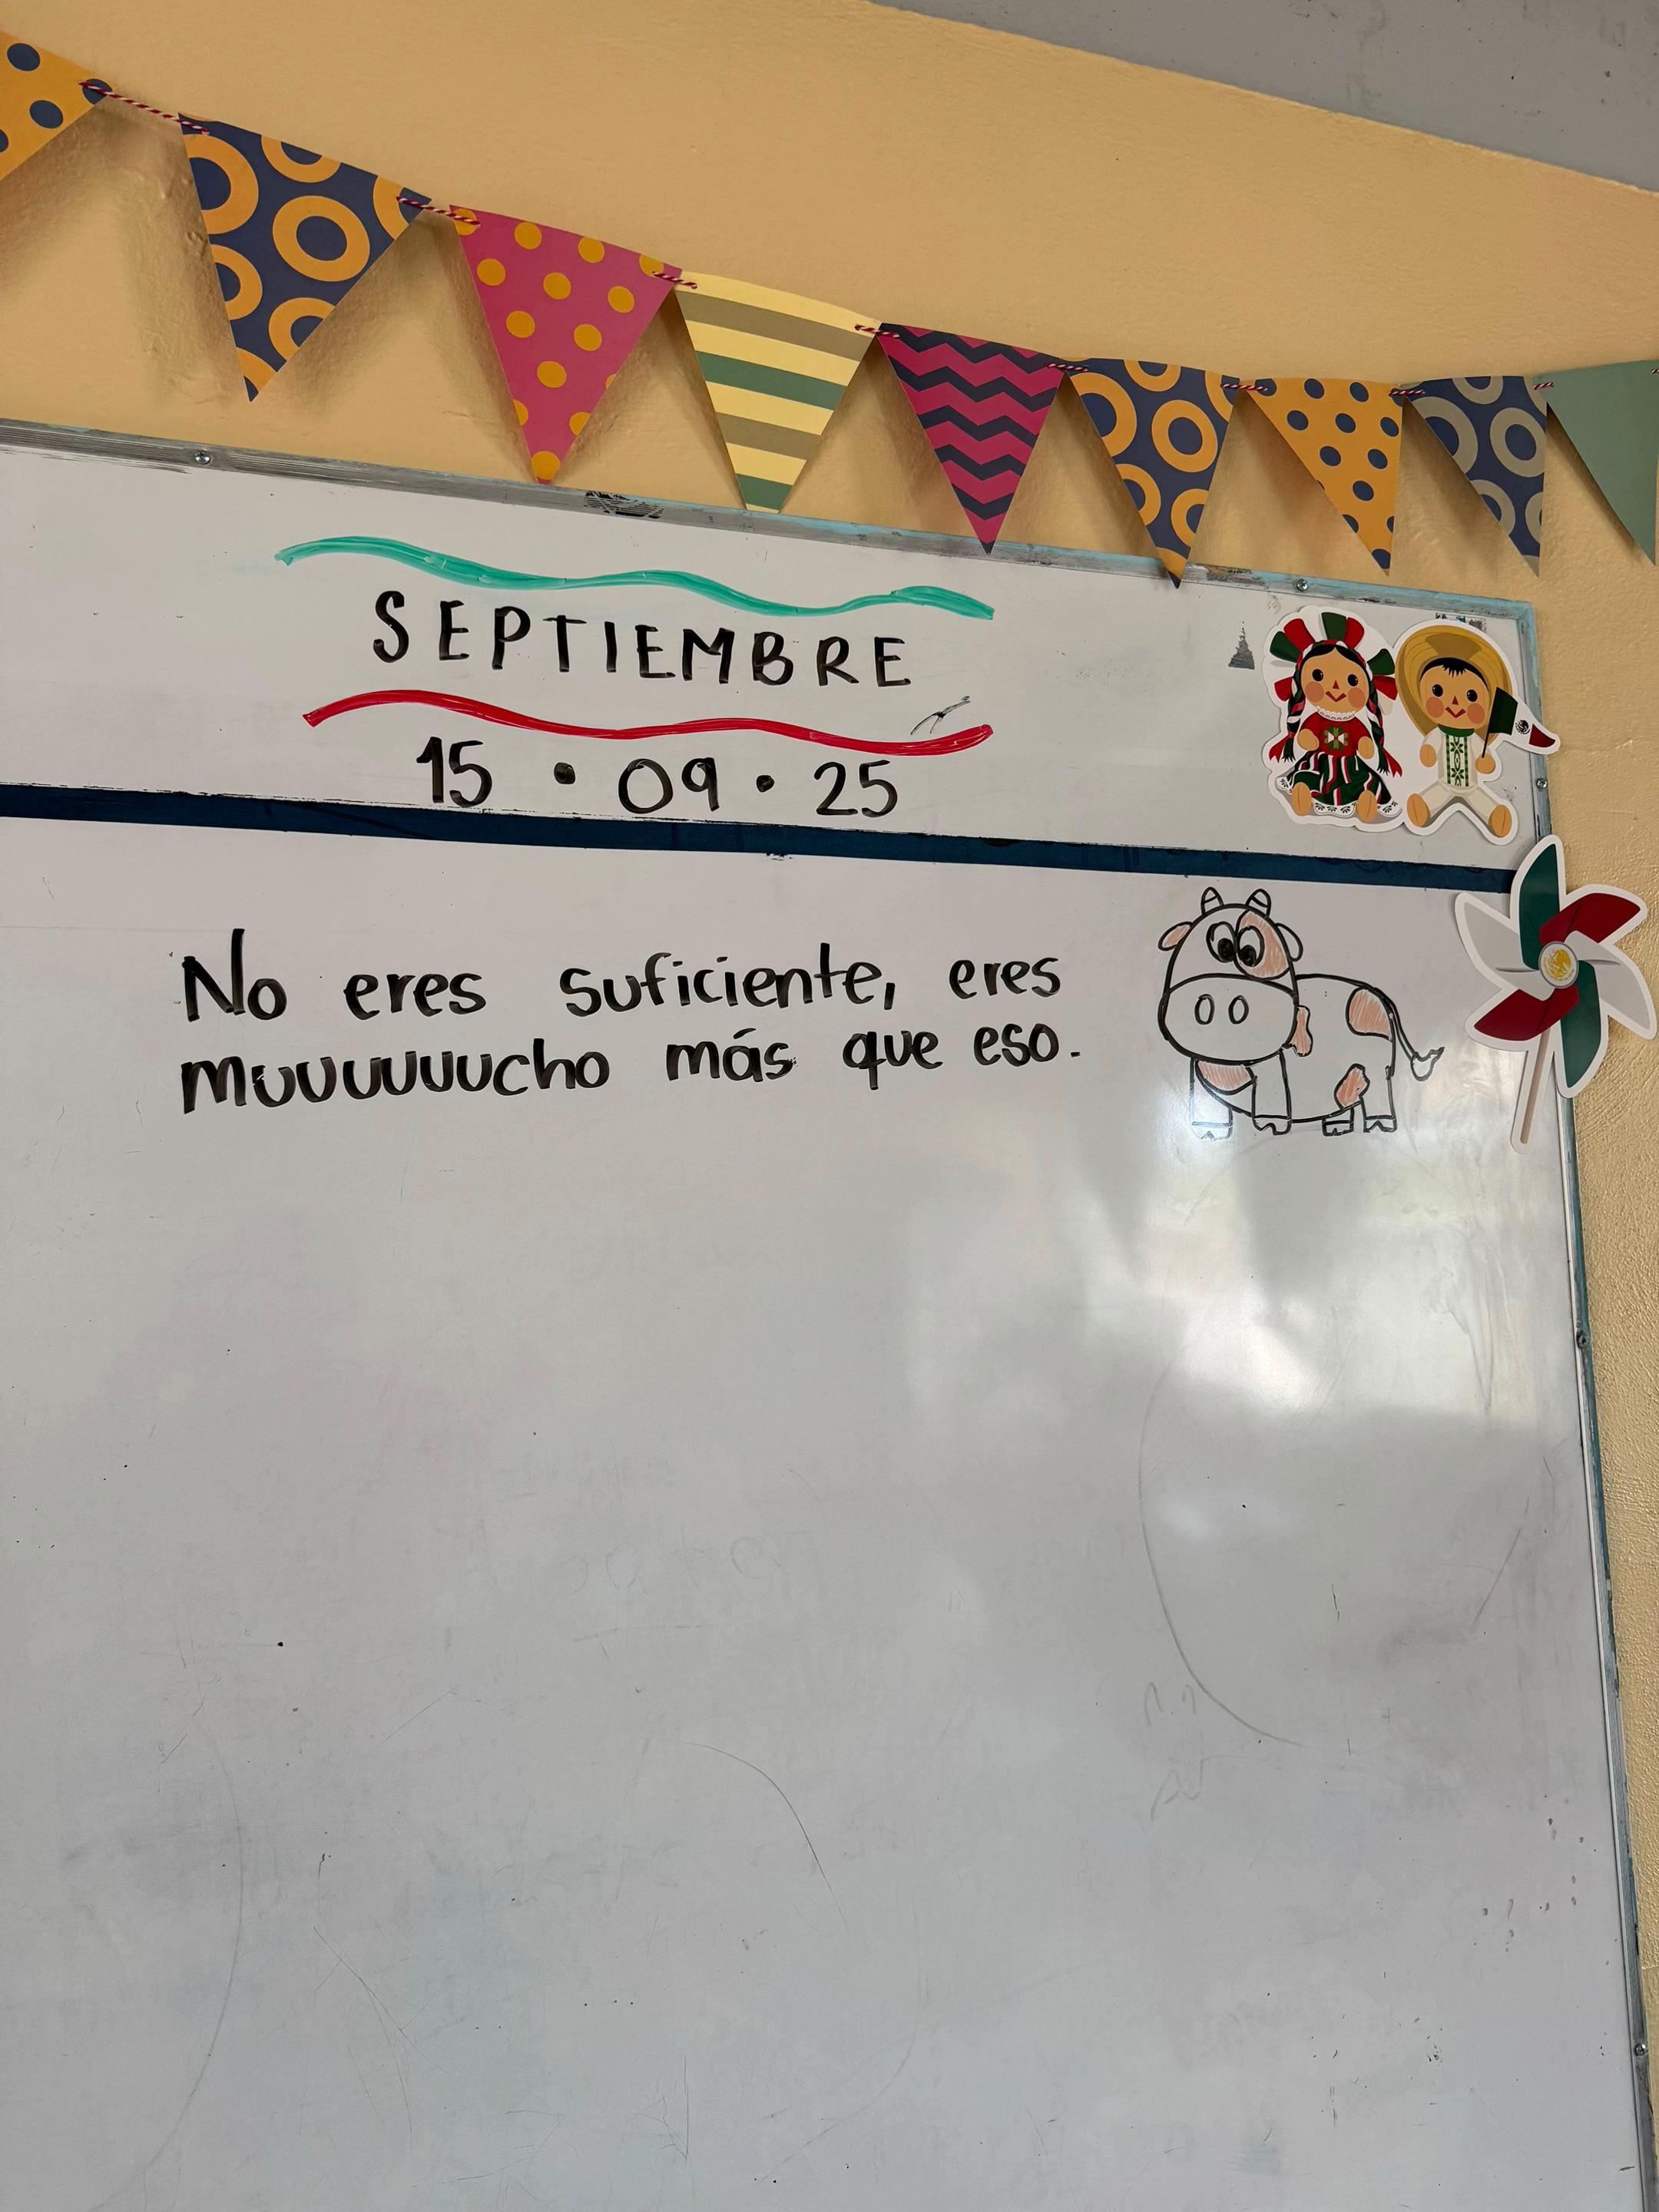 SEPTIEMBRE
15 • 09 • 25
No eres suficiente, eres
muuuuuucho más que eso.